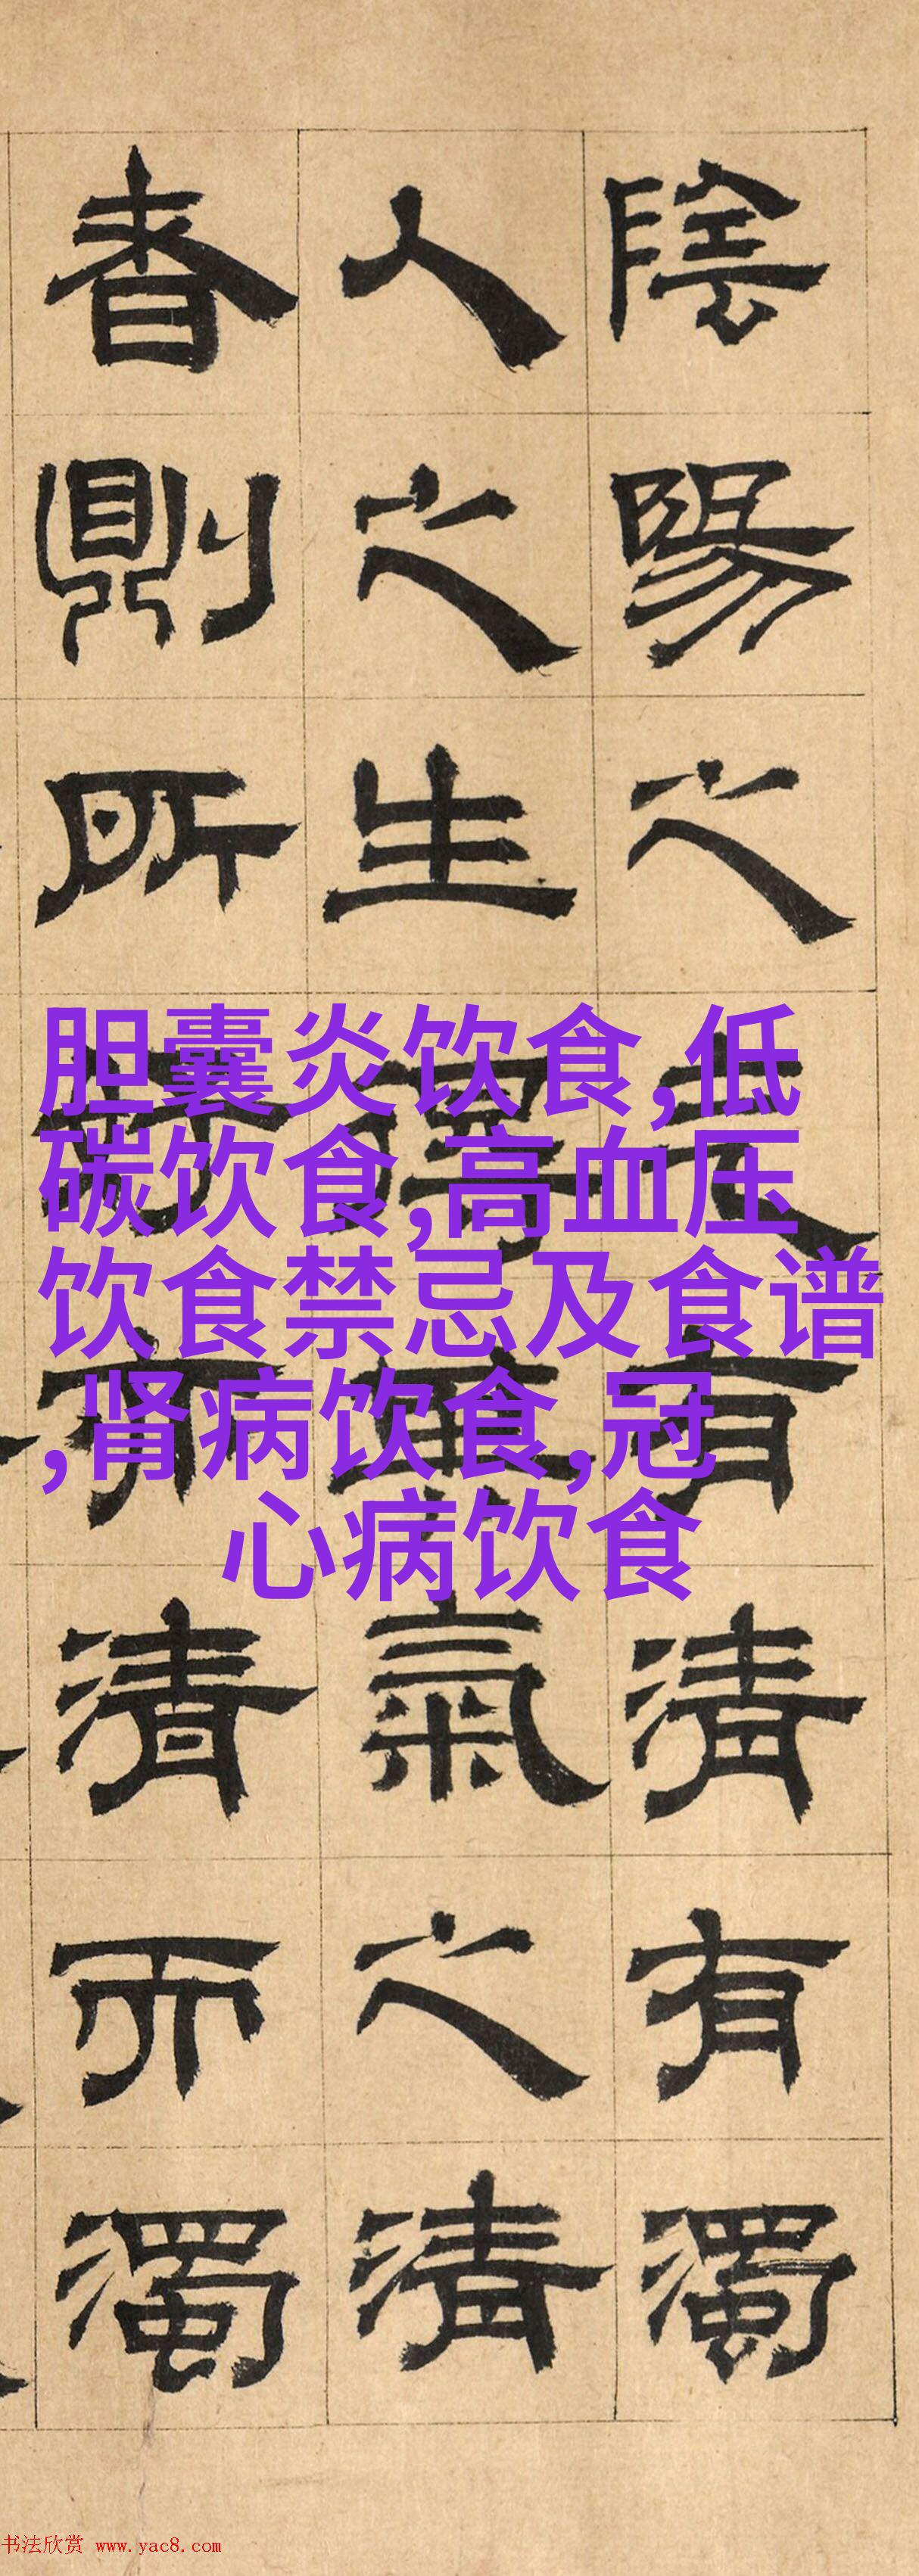 陰陽之有清有濁
人之生氣之清
者則所清而濁
胆囊炎饮食,低
碳饮食,高血压
饮食禁忌及食谱
,肾病饮食,冠
心病饮食
书法欣赏 www.yac8.com